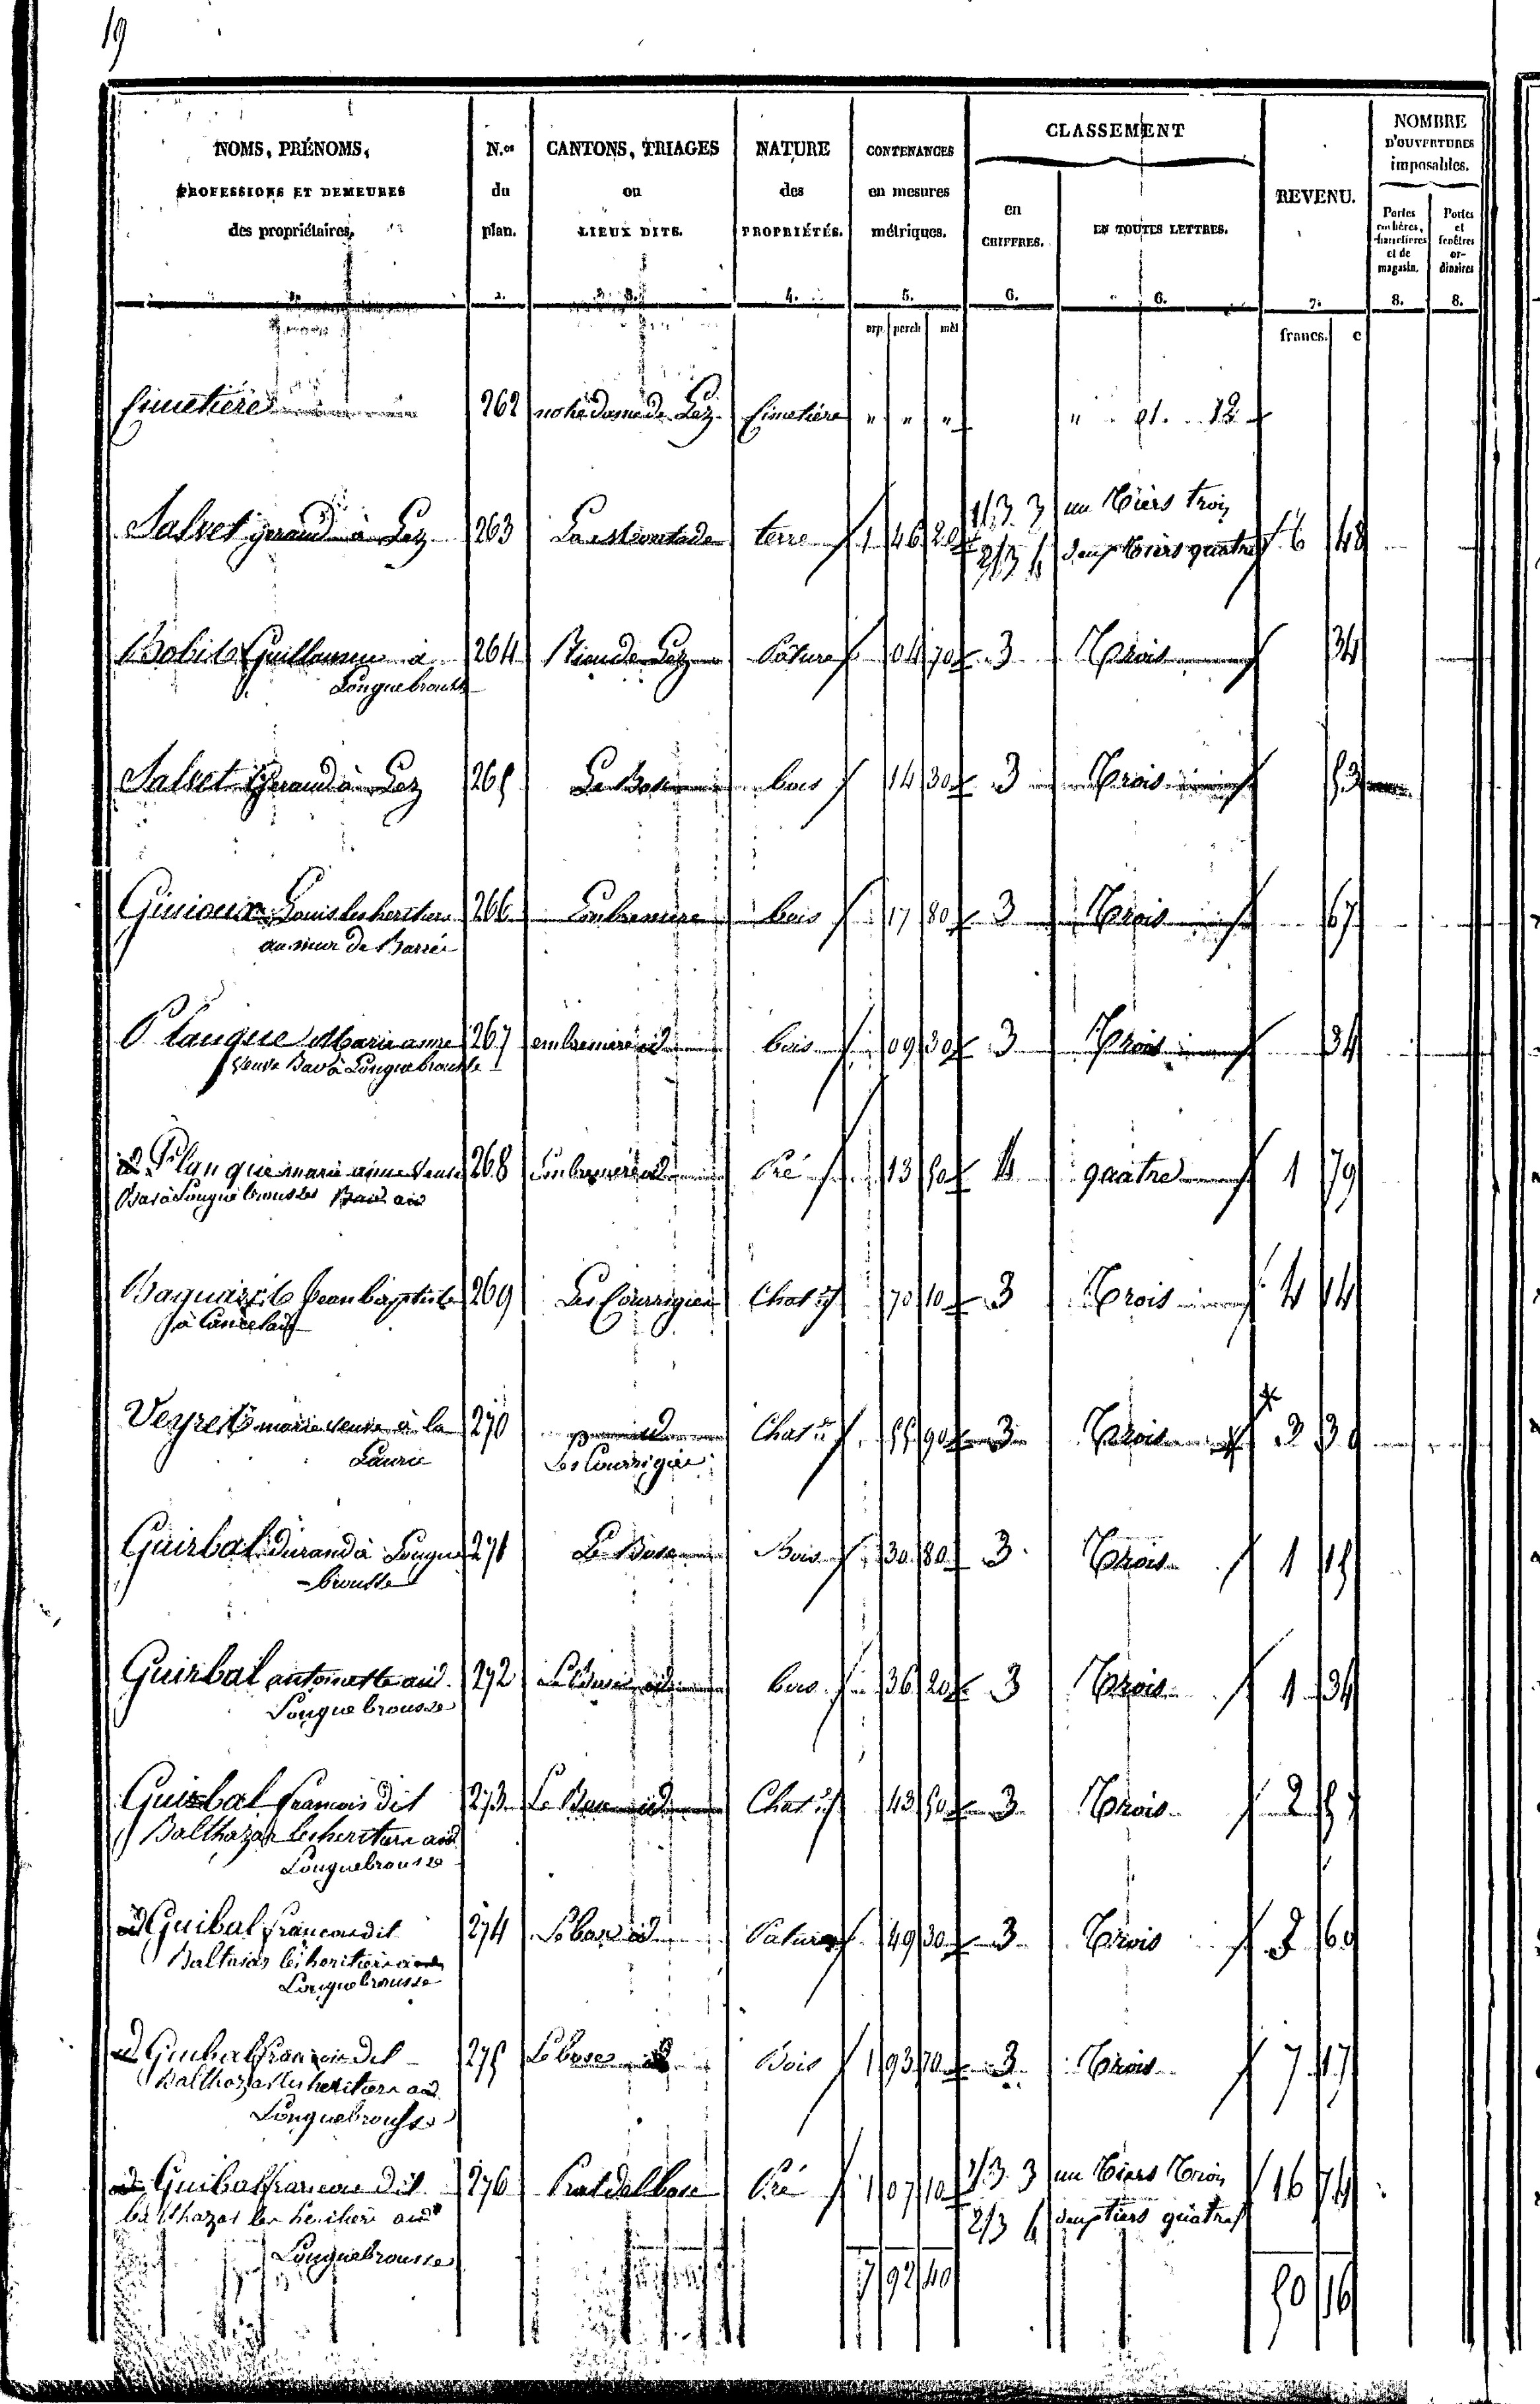 19
NOMS, PRÉNOMS, N.os CANTONS, TRIAGES NATURE CONTENANCES CLASSEMENT REVENU. NOMBRE D'OUVERTURES imposables.
PROFESSIONS ET DEMEURES du ou des en mesures en EN TOUTES LETTRES.
des propriétaires. plan. LIEUX DITS. PROPRIÉTÉS. métriques. CHIFFRES.
Portes cochères, charretières et de magasin. Portes et fenêtres ordinaires
2. 3. 4. 5. 6. 6. 7. 8. 8.
arp. perch mèt francs. c
Cimetière 262 notre dame de Lez Cimetière " " " " 12
Salvet gerand à Lez 263 terre 1 46 20 1/3 3 un tiers trois 6 48
2/3 4 deux tiers quatre
Guillaume à 264 Lez Pature 04 70 3 Trois 34
Longuebrousse
Salvet Gerand à Lez 265 Le Bosc bois 14 30 3 Trois 53
Louis les heritiers 266 bois 17 80 3 Trois 67
Planque Marie anne 267 id bois 09 30 3 Trois 34
veuve à Longuebrousse
id Planque marie anne veuve 268 id Pré 13 50 4 quatre 1 79
à Longuebrousse
jean baptiste 269 Les Courrigies Chat.er 70 10 3 Trois 4 14
à
marie veuve à la 270 id Chat.er 55 90 3 Trois 3 30
Laurie Les Courrigies
Guirbal durand à Longue 271 Le Bosc Bois 30 80 3 Trois 1 15
-brousse
Guirbal antoinette aud. 272 Le Bosc id bois 36 20 3 Trois 1 34
Longuebrousse
Guirbal francois dit 273 Le Bosc id Chat.er 43 50 3 Trois 2 57
Balthazar les heritiers aud
Longuebrousse
id Guibal francois dit 274 Le bosc id Pature 49 30 3 Trois 3 69
les heritiers
Longuebrousse
id Guibal francois dit 275 Le bosc id Bois 1 93 70 3 Trois 7 17
Balthazar les heritiers aud
Longuebrousse
id Guibal francois dit 276 Prat del bosc Pré 1 07 10 1/3 3 un tiers trois 16 74
balthazar les heritiers aud 2/3 4 deux tiers quatre
Longuebrousse
7 92 40 50 16